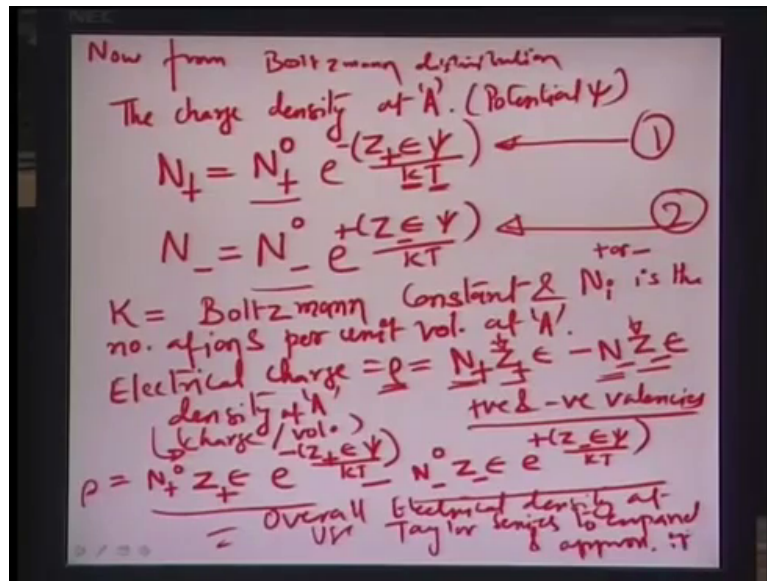 NEC
Now from Boltzmann distribution
The charge density at 'A'. (Potential ψ)
N+ = N+⁰ e^-(Z+ ∈ ψ / KT) ← ①
N- = N-⁰ e^+(Z- ∈ ψ / KT) ← ②
+or-
K = Boltzmann Constant & Ni is the
no. of ions per unit vol. at 'A'.
Electrical charge = ρ = N+ Z+ ∈ - N- Z- ∈
density at 'A' +ve & -ve valencies
(charge/vol.)
ρ = N+⁰ Z+ ∈ e^-(Z+ ∈ ψ / KT) - N-⁰ Z- ∈ e^+(Z- ∈ ψ / KT)
= Overall Electrical density at
Use Taylor series to expand
& approx. it